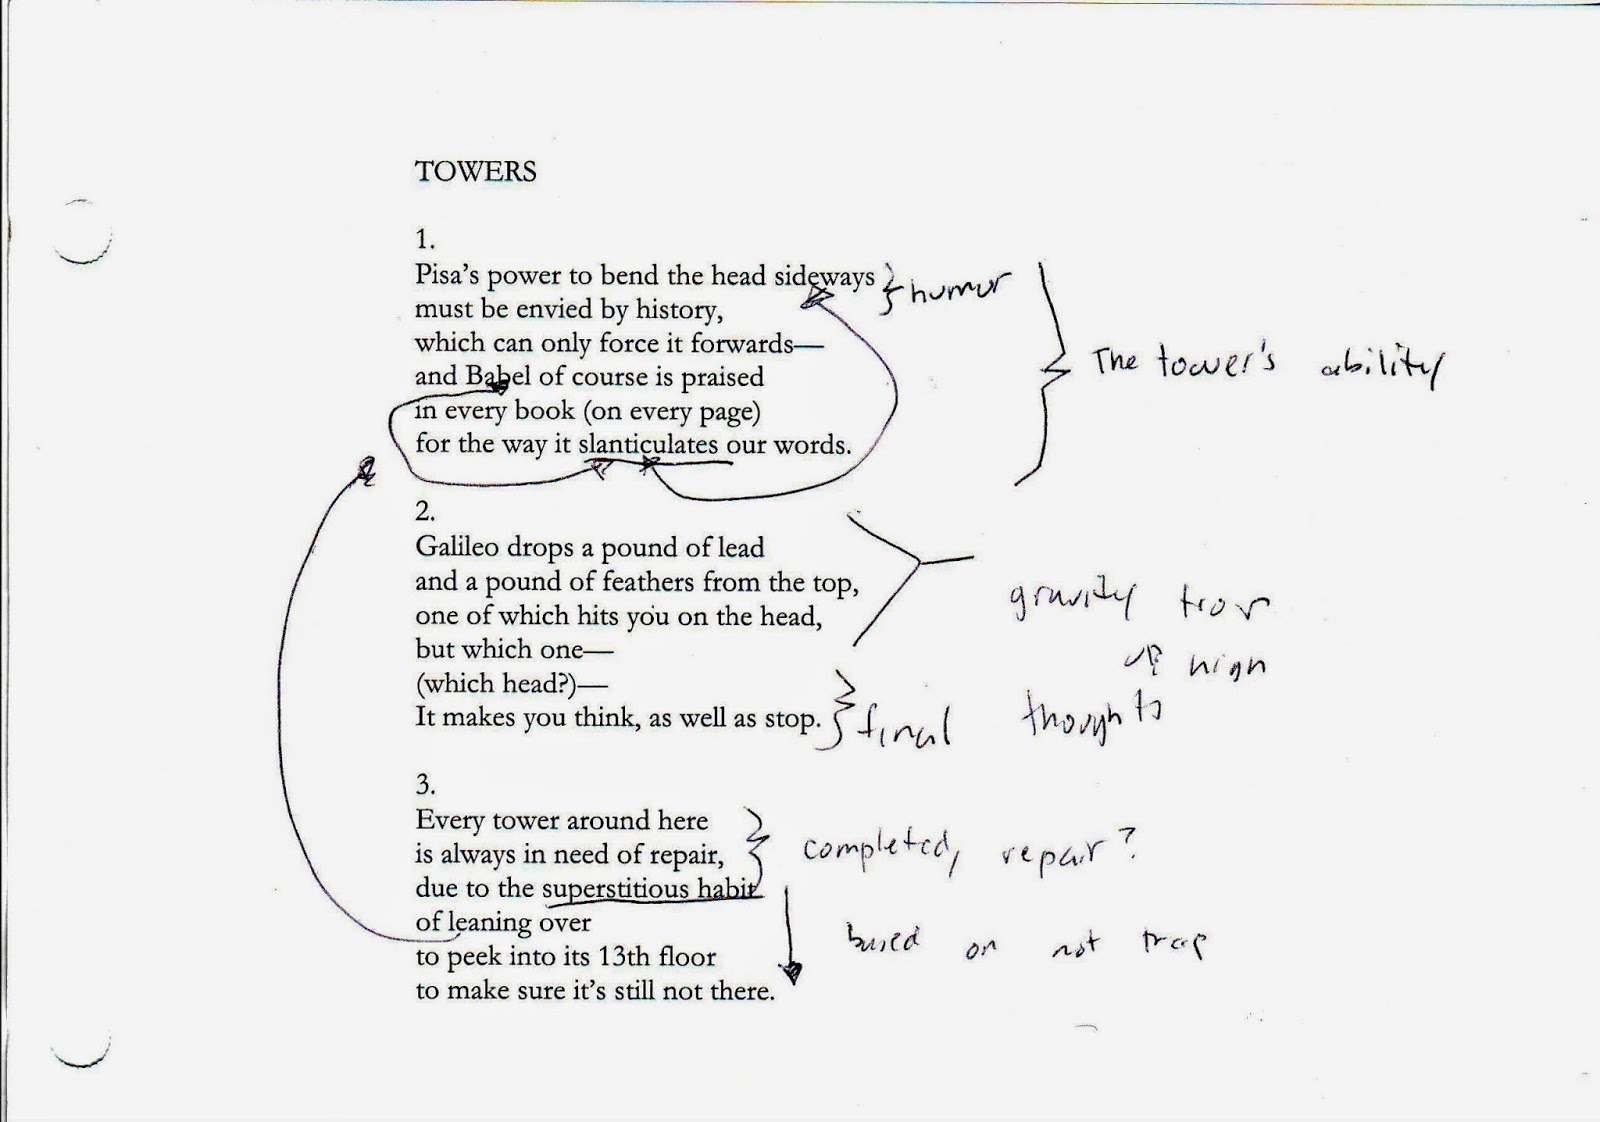 TOWERS
1.
Pisa's power to bend the head sideways
humor
must be envied by history,
which can only force it forwards—
The tower's ability
and Babel of course is praised
in every book (on every page)
for the way it slanticulates our words.
2.
Galileo drops a pound of lead
and a pound of feathers from the top,
one of which hits you on the head,
gravity from
but which one—
up high
(which head?)—
It makes you think, as well as stop.
final thoughts
3.
Every tower around here
is always in need of repair,
completed, repair?
due to the superstitious habit
of leaning over
based on not
to peek into its 13th floor
to make sure it's still not there.